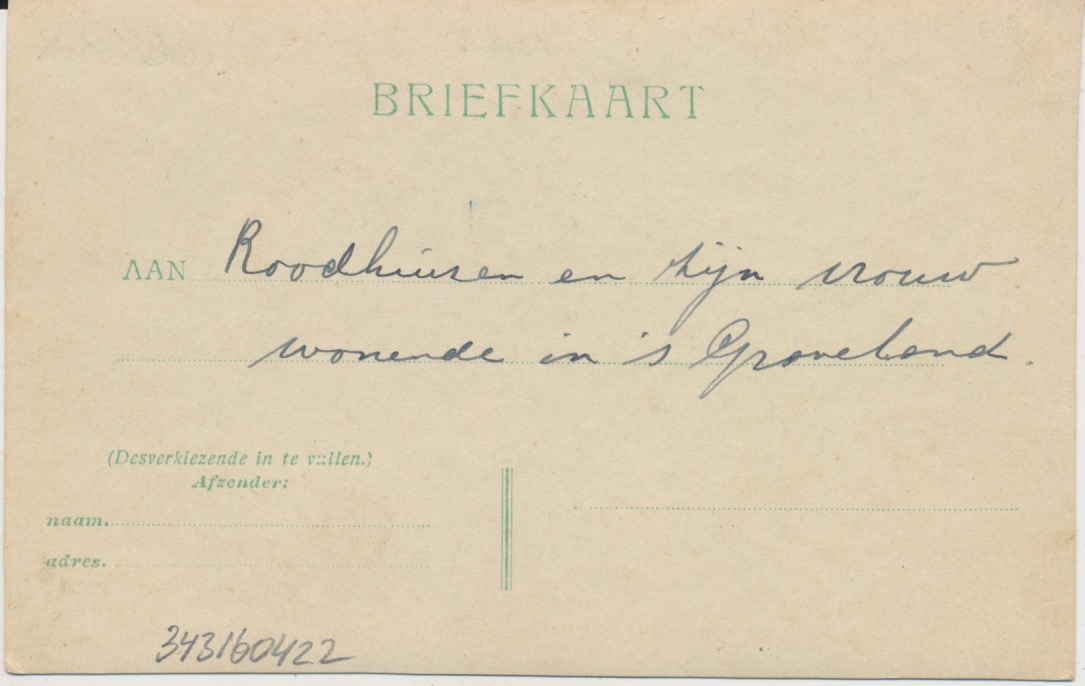 BRIEFKAART
AAN Roodhuizen en zijn vrouw
wonende in 's Graveland.
(Desverkiezende in te vullen.)
Afzender:
naam.
adres.
343160422